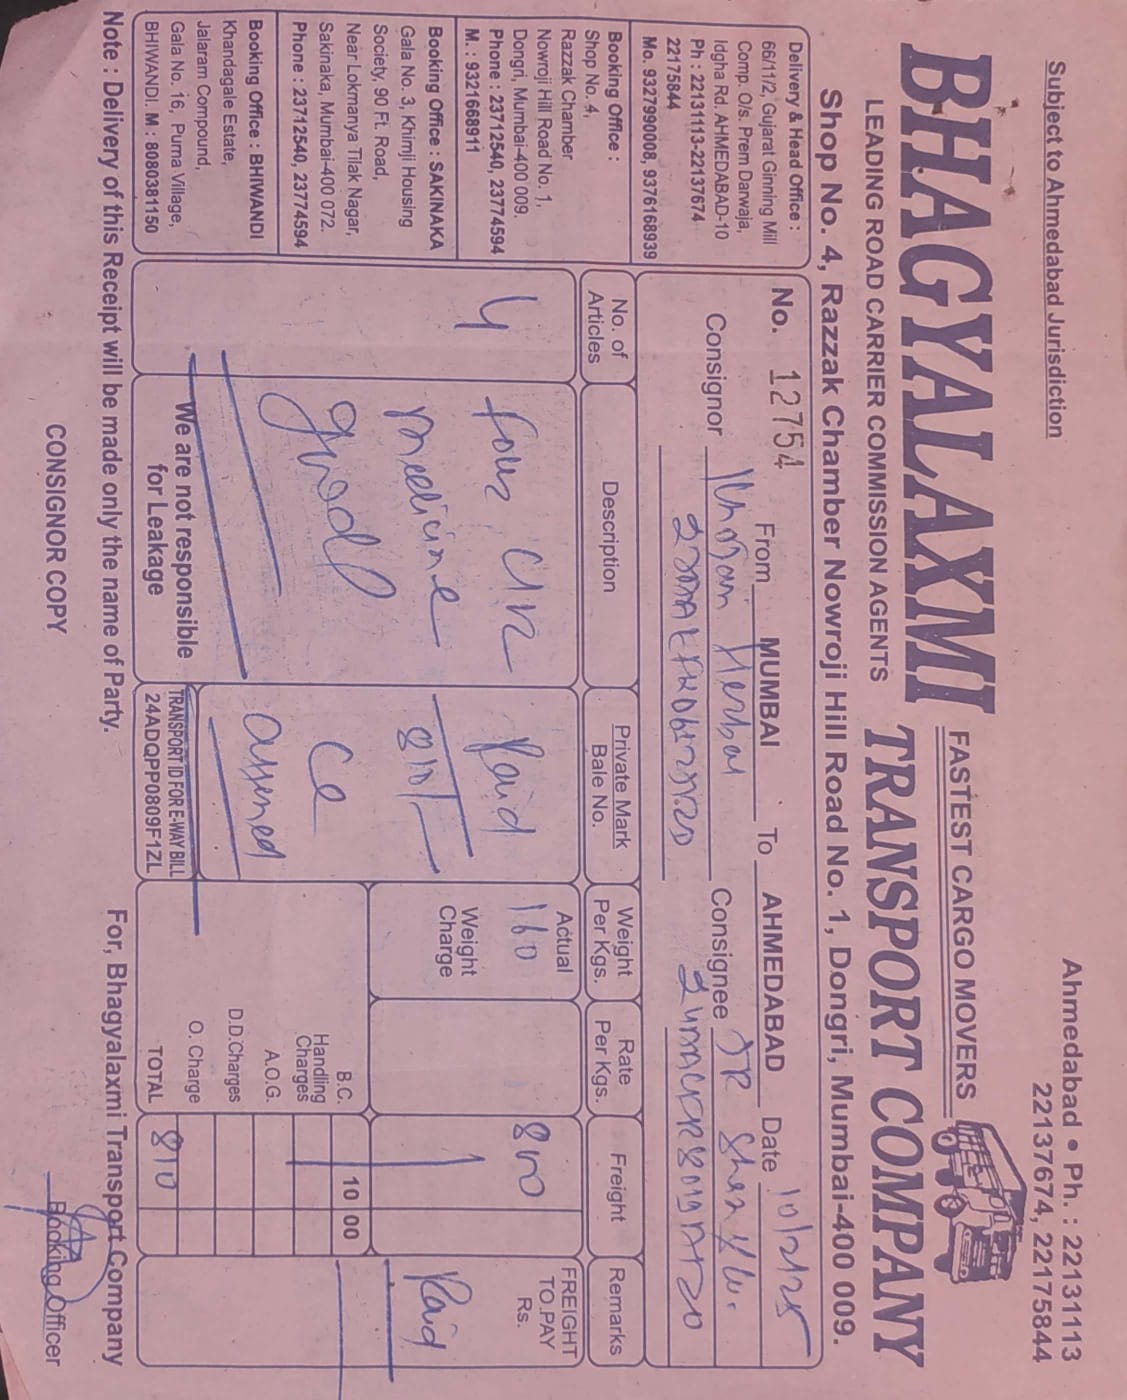 Subject to Ahmedabad Jurisdiction
Ahmedabad • Ph. : 22131113
22137674, 22175844
BHAGYALAXMI TRANSPORT COMPANY
FASTEST CARGO MOVERS
LEADING ROAD CARRIER COMMISSION AGENTS
Shop No. 4, Razzak Chamber Nowroji Hill Road No. 1, Dongri, Mumbai-400 009.
Delivery & Head Office :
66/11/2, Gujarat Ginning Mill
Comp. O/s. Prem Darwaja,
Idgha Rd. AHMEDABAD-10
Ph : 22131113-22137674
22175844
Mo. 9327990008, 9376168939
Booking Office :
Shop No. 4,
Razzak Chamber
Nowroji Hill Road No. 1,
Dongri, Mumbai-400 009.
Phone : 23712540, 23774594
M. : 9321668911
Booking Office : SAKINAKA
Gala No. 3, Khimji Housing
Society, 90 Ft. Road,
Near Lokmanya Tilak Nagar,
Sakinaka, Mumbai-400 072.
Phone : 23712540, 23774594
Booking Office : BHIWANDI
Khandagale Estate,
Jalaram Compound,
Gala No. 16, Purna Village,
BHIWANDI. M : 8080381150
No. 12754 From MUMBAI To AHMEDABAD Date 10/2/25
Consignor Herbal Consignee JR
No. of Articles Description Private Mark Bale No. Weight Per Kgs. Rate Per Kgs. Freight Remarks
4 four Paid Actual 160 800 FREIGHT TO PAY Rs.
medicine 810/- Weight Charge Paid
good
B.C. 10 00
Handling Charges
A.O.G.
D.D.Charges
O. Charge
TOTAL 810
We are not responsible
for Leakage
TRANSPORT ID FOR E-WAY BILL
24ADQPP0809F1ZL
Note : Delivery of this Receipt will be made only the name of Party.
For, Bhagyalaxmi Transport Company
CONSIGNOR COPY
Booking Officer